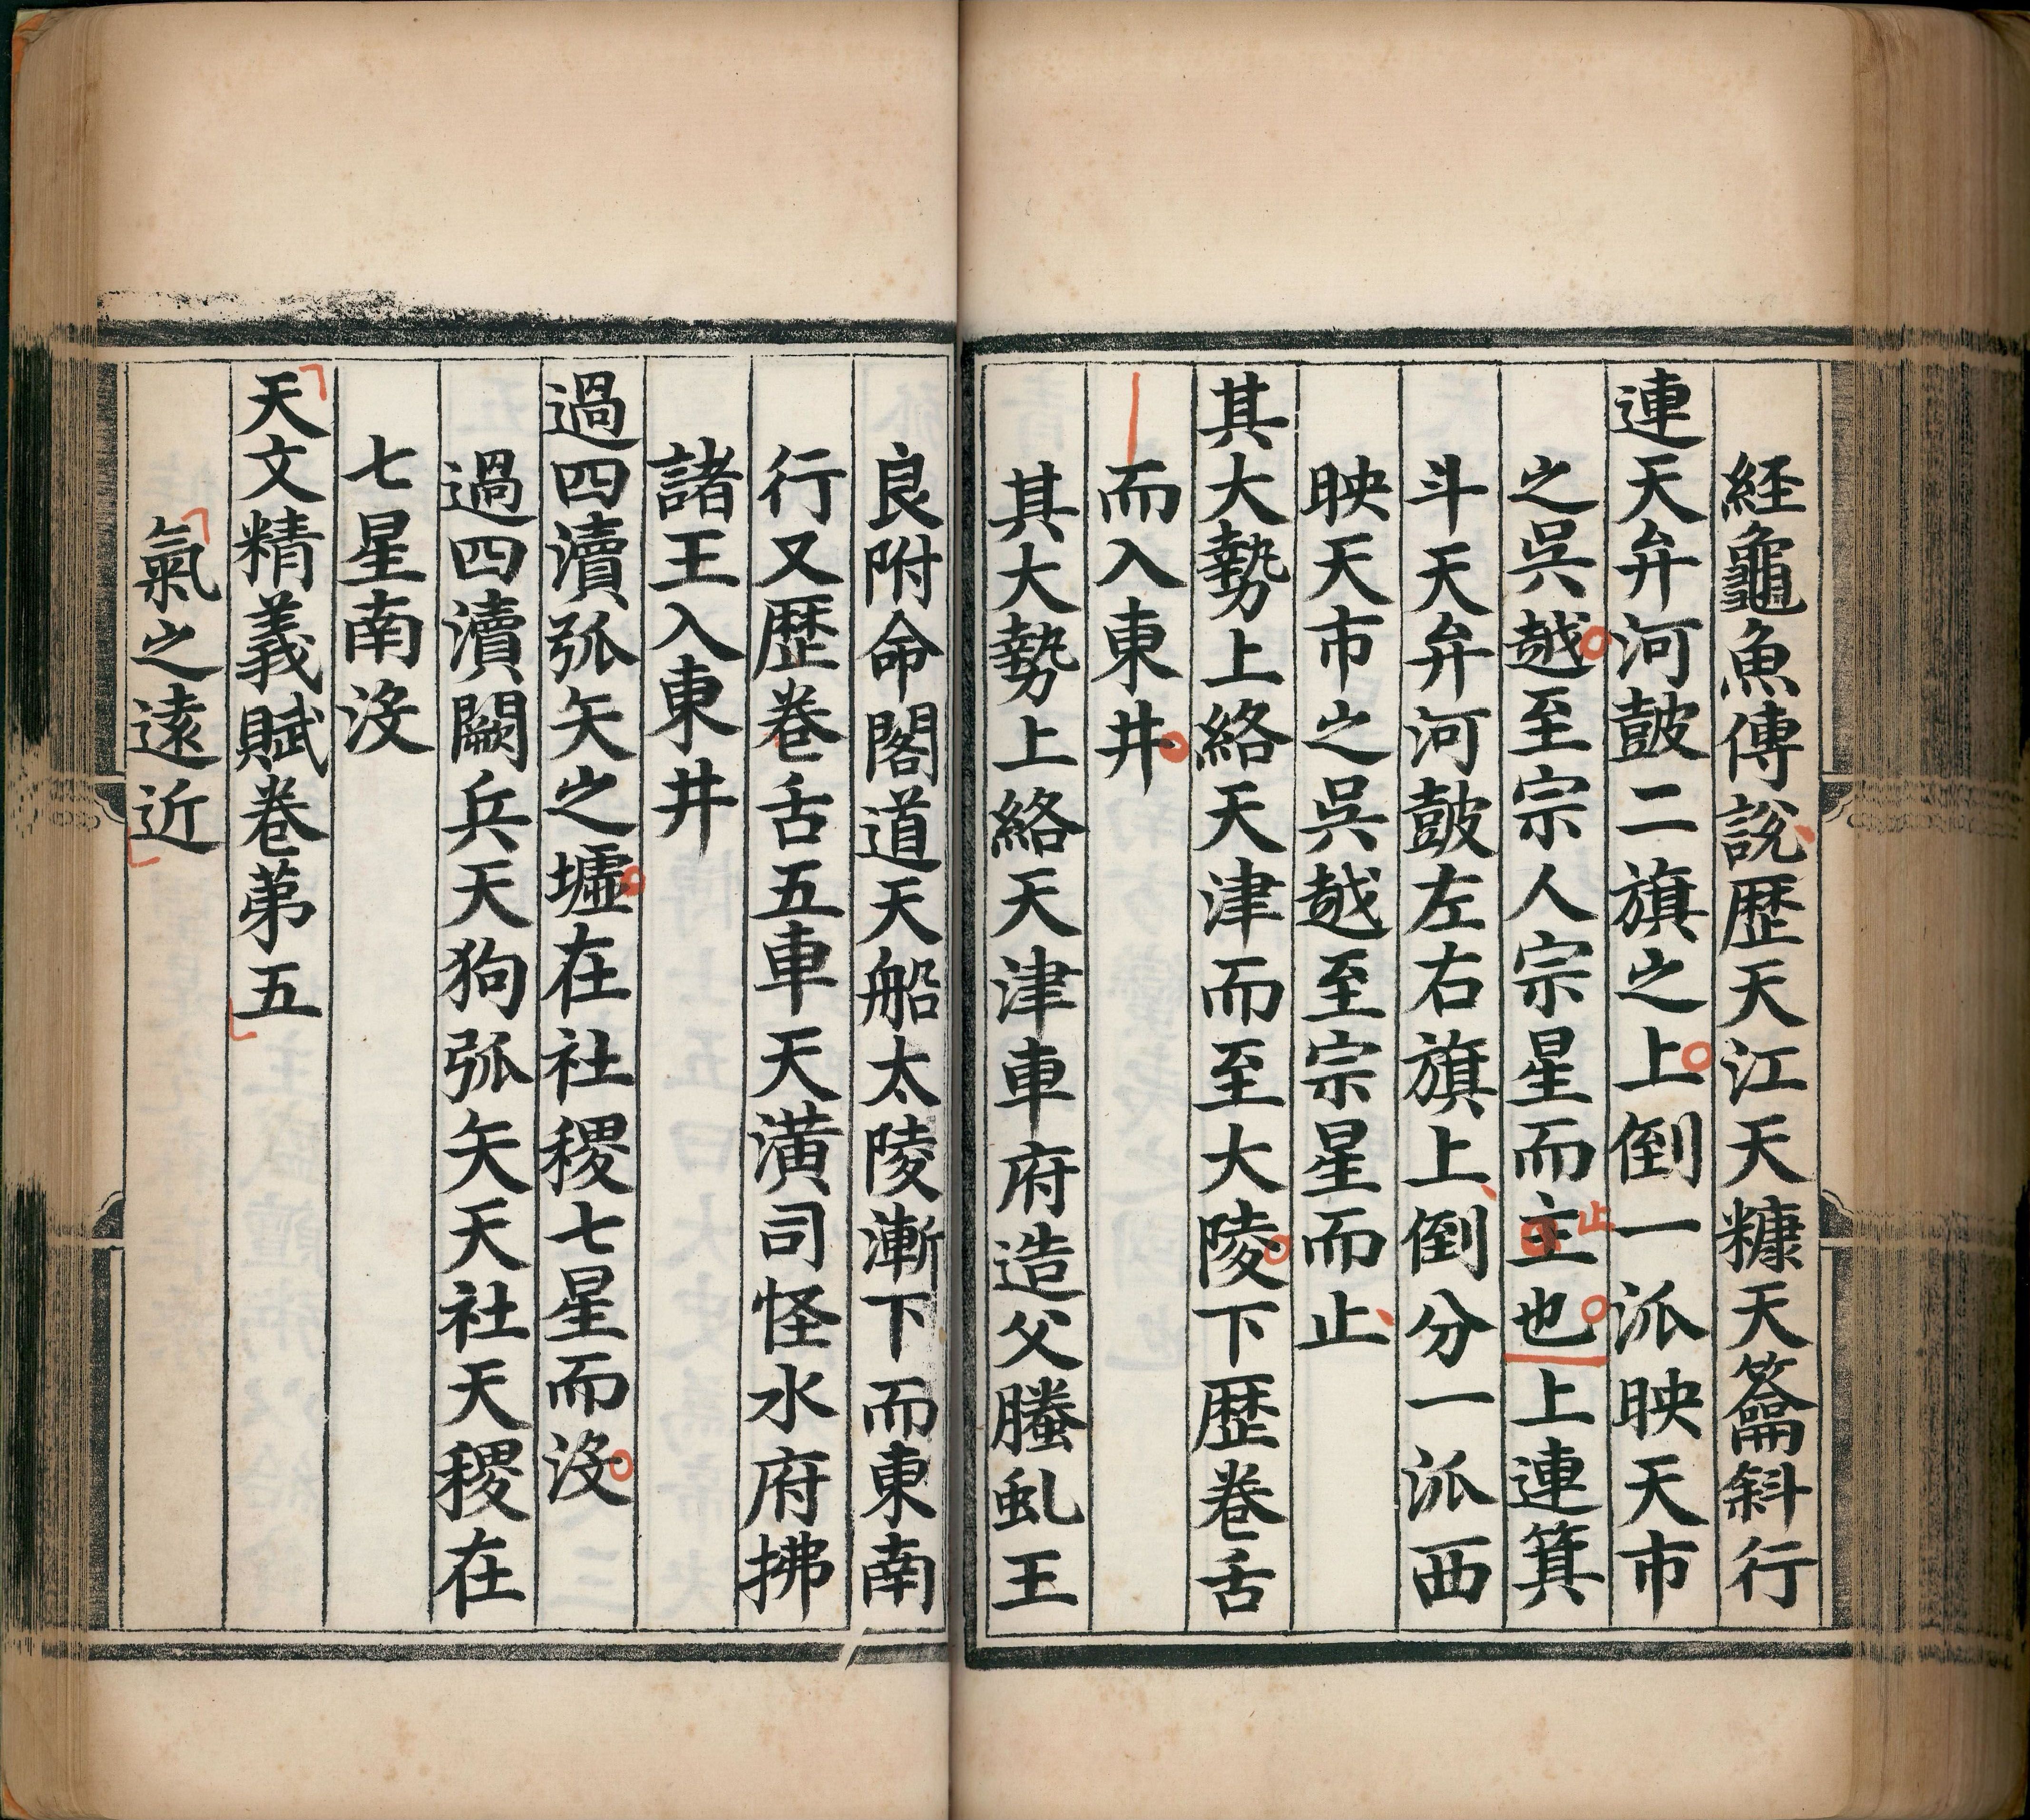 経龜魚傳説歴天江天糠天籥斜行
連天弁河皷二旗之上倒一泒映天市
之呉越至宗人宗星而主也上連箕
止
斗天弁河皷左右旗上倒分一泒西
映天市之呉越至宗星而止
其大勢上絡天津而至大陵下歴巻舌
而入東井
其大勢上絡天津車府造父螣虬王
良附命閣道天船太陵漸下而東南
行又歴巻舌五車天潢司怪水府拂
諸王入東井
過四瀆弧矢之墟在社稷七星而没
過四瀆闕兵天狗弧矢天社天稷在
七星南没
天文精義賦巻苐五
氣之遠近